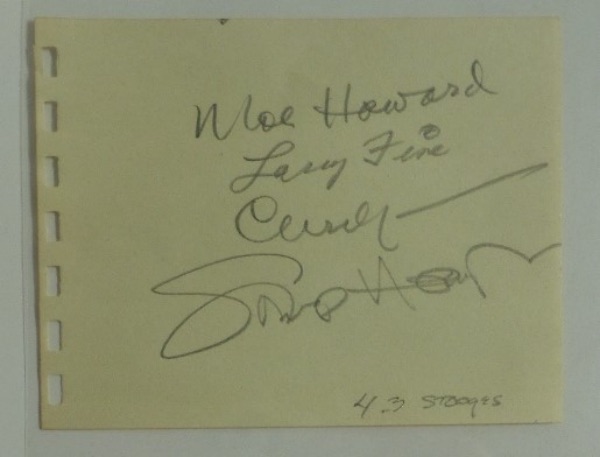 Moe Howard
Larry Fine
Curly
Shemp Howard
4 3 STOOGES